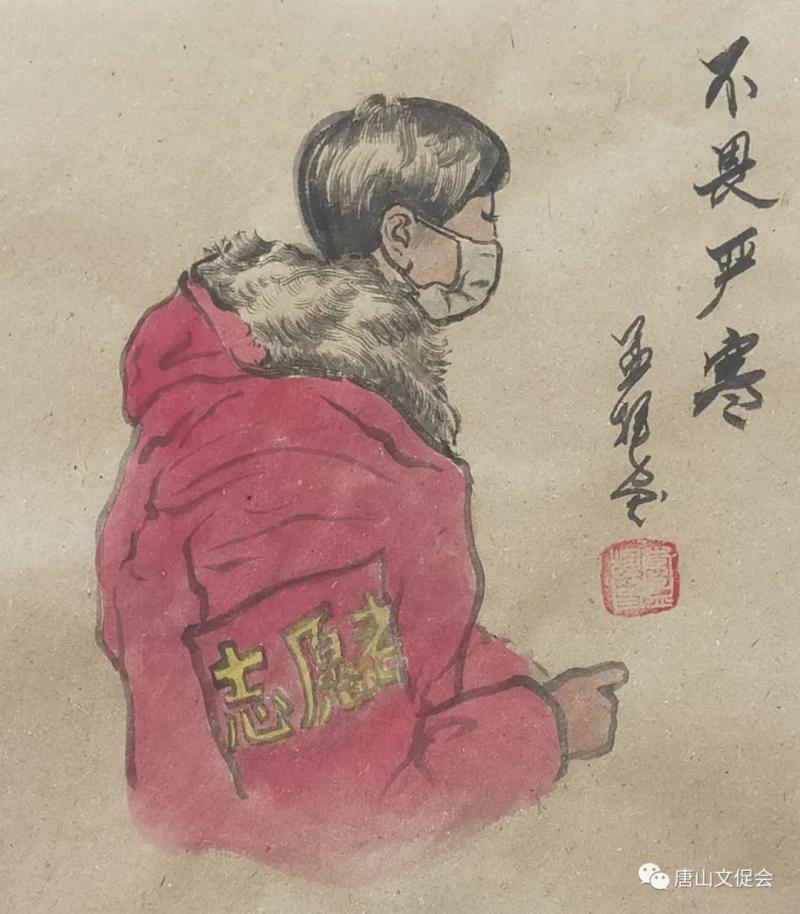 不畏严寒
志愿者
唐山文促会